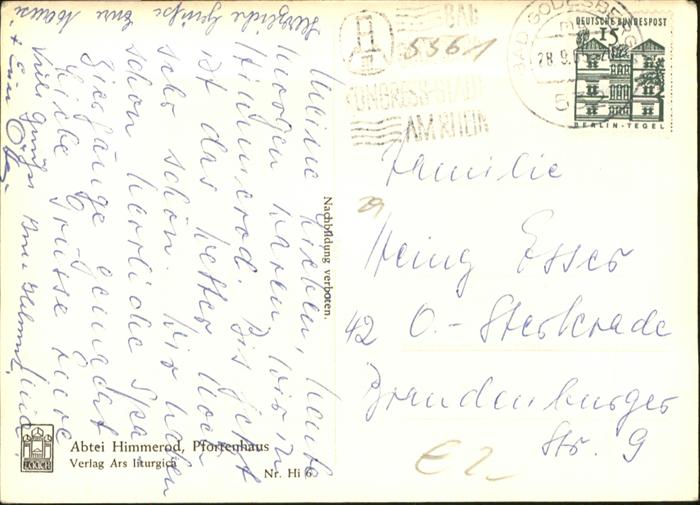 Meine Lieben, heute
morgen waren wir in
Himmerod. Bis jetzt
ist das Wetter noch
sehr schön. Wir haben
schon herrliche Spa
ziergänge gemacht
Liebe Grüsse Eure
Herzliche Grüße
Eure
Viele Grüße
Familie
Heinz Esser
42 O.-Sterkrade
Brandenburger
Str. 9
5561
BAD
KONGRESS-STADT
AM RHEIN
BAD GODESBERG
28.9.
DEUTSCHE BUNDESPOST
15
BERLIN-TEGEL
Nachbildung verboten.
Abtei Himmerod, Pfortenhaus
Verlag Ars liturgica
Nr. Hi 6
€ 2,-